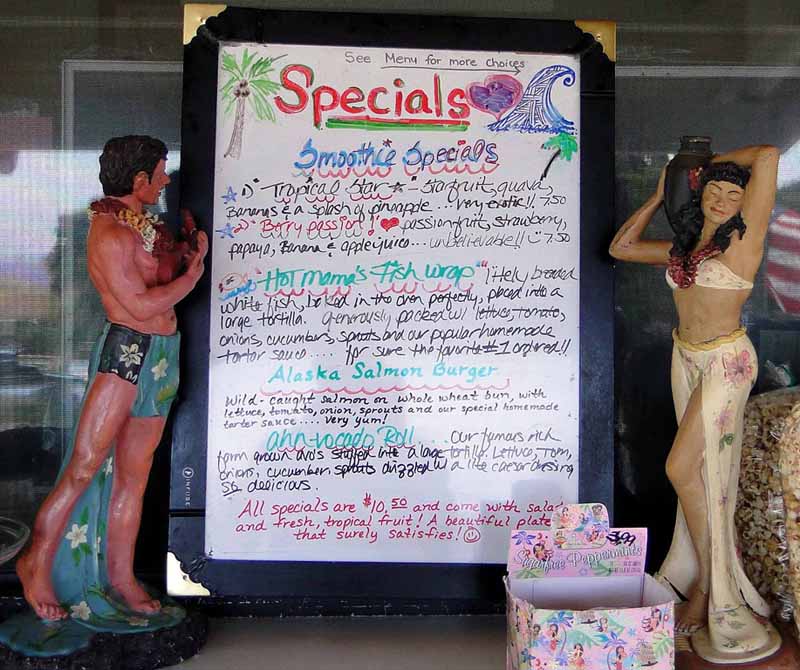 See Menu for more choices
Specials
Smoothie Specials
1) "Tropical Star" - Starfruit, guava,
Bananas & a splash of pineapple... very exotic!! 7.50
2) "Berry passion!" passionfruit, strawberry,
papaya, Banana & applejuice... unbelievable!! 7.50
"Hot mama's Fish wrap" litely breaded
white fish, baked in the oven perfectly, placed into a
large tortilla. Generously packed w/ lettuce, tomato,
onions, cucumbers, sprouts and our popular homemade
tartar sauce.... for sure the favorite #1 ordered!!
Alaska Salmon Burger
Wild-caught salmon on whole wheat bun, with
lettuce, tomato, onion, sprouts and our special homemade
tarter sauce.... Very yum!
ahh-vocado Roll... Our famous rich
farm grown avo's stuffed into a large tortilla. Lettuce, Tom,
onions, cucumber, sprouts drizzled w/ a lite caesar dressing
So delicious.
All specials are $10.50 and come with salad
and fresh, tropical fruit! A beautiful plate
that surely satisfies!
INFUSE
Sugarfree Peppermints